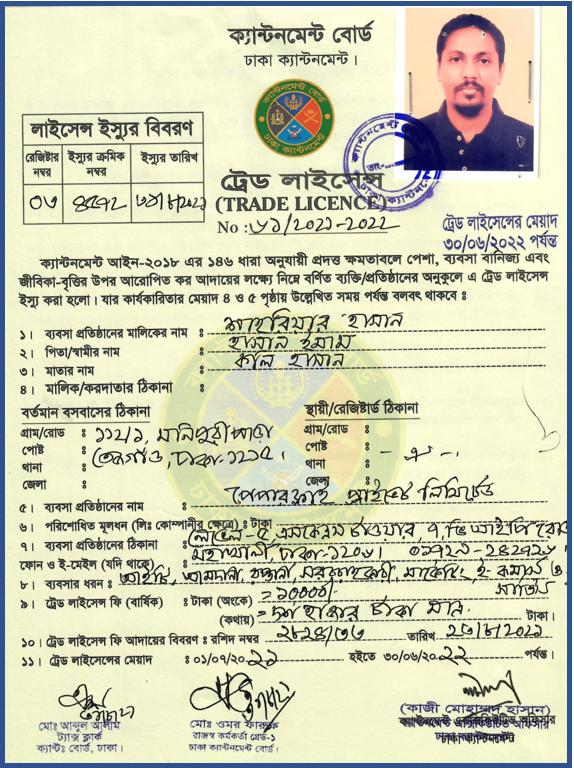 ক্যান্টনমেন্ট বোর্ড
ঢাকা ক্যান্টনমেন্ট।
লাইসেন্স ইস্যুর বিবরণ
রেজিষ্টার নম্বর
ইস্যুর ক্রমিক নম্বর
ইস্যুর তারিখ
০৩
ট্রেড লাইসেন্স
(TRADE LICENCE)
No : ৬১/২০২১-২০২২
ট্রেড লাইসেন্সের মেয়াদ
৩০/০৬/২০২২ পর্যন্ত
ক্যান্টনমেন্ট আইন-২০১৮ এর ১৪৬ ধারা অনুযায়ী প্রদত্ত ক্ষমতাবলে পেশা, ব্যবসা বানিজ্য এবং
জীবিকা-বৃত্তির উপর আরোপিত কর আদায়ের লক্ষ্যে নিম্নে বর্ণিত ব্যক্তি/প্রতিষ্ঠানের অনুকুলে এ ট্রেড লাইসেন্স
ইস্যু করা হলো। যার কার্যকারিতার মেয়াদ ৪ ও ৫ পৃষ্ঠায় উল্লেখিত সময় পর্যন্ত বলবৎ থাকবে :
১। ব্যবসা প্রতিষ্ঠানের মালিকের নাম : শাহরিয়ার হাসান
২। পিতা/স্বামীর নাম : হাসান ইমাম
৩। মাতার নাম : হাসান
৪। মালিক/করদাতার ঠিকানা :
বর্তমান বসবাসের ঠিকানা
গ্রাম/রোড : ১১২/১, মনিপুরীপাড়া
পোষ্ট : তেজগাঁও, ঢাকা-১২১৫।
থানা :
জেলা :
স্থায়ী/রেজিষ্টার্ড ঠিকানা
গ্রাম/রোড :
পোষ্ট : - ঐ -
থানা :
জেলা :
৫। ব্যবসা প্রতিষ্ঠানের নাম : পেপারফ্লাই প্রাইভেট লিমিটেড
৬। পরিশোধিত মূলধন (লিঃ কোম্পানীর ক্ষেত্রে) : টাকা
৭। ব্যবসা প্রতিষ্ঠানের ঠিকানা : লেভেল-৫, টাওয়ার, ৭, ভিআইপি রোড
মহাখালী, ঢাকা-১২০৬।
ফোন ও ই-মেইল (যদি থাকে) :
৮। ব্যবসার ধরন : আইটি, আমদানী, রপ্তানী, সরবরাহকারী, ই-কমার্স ও
সার্ভিস
৯। ট্রেড লাইসেন্স ফি (বার্ষিক) : টাকা (অংকে) = ১০০০০/-
(কথায়) = দশ হাজার টাকা মাত্র টাকা।
১০। ট্রেড লাইসেন্স ফি আদায়ের বিবরণ : রশিদ নম্বর ২৮২৪/৩৩ তারিখ ২৩/৮/২০২১
১১। ট্রেড লাইসেন্সের মেয়াদ : ০১/০৭/২০২১ হইতে ৩০/০৬/২০২২ পর্যন্ত।
মোঃ আব্দুল আলীম
ট্যাক্স ক্লার্ক
ক্যান্টঃ বোর্ড, ঢাকা।
মোঃ ওমর ফারুক
রাজস্ব কর্মকর্তা গ্রেড-১
ঢাকা ক্যান্টনমেন্ট বোর্ড।
(কাজী মোহাম্মদ হাসান)
ক্যান্টনমেন্ট এক্সিকিউটিভ অফিসার
ঢাকা ক্যান্টনমেন্ট